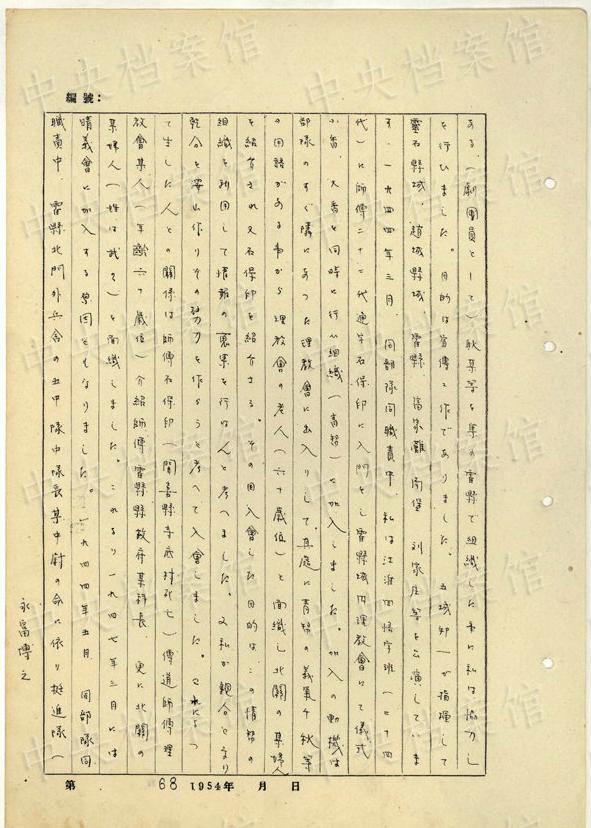 編號：
ある、（劇團員として）耿某等を集め霍縣で組織した事に私は協力し
を行ひました。目的は宣傳工作でありました。五城却一が指揮して
靈石縣城、趙城縣城、霍縣、富家灘、南堡、刘家庄等を公演していま
す、一九四四年三月、同部隊同職責中、私は江淮四悟字班（二十四
代）に師傅二十三代通字石保印に入門をし霍縣城内理教會にて儀式
小香、大香を同時に行ひ組織（青幇）に加入しました。加入の動機は
部隊のすぐ隣にあった理教會に出入りして、其處に青幇の義氣千秋等
の図語がある事から理教會の老人（六十歳位）と面織し北關の某婦人
を紹介され又石保印を紹介さる。その回入會した目的は、この情幇の
組織を利用して情報の蒐集を行はんと考へました。又私が親分となり
乾分を沢山作りその勢力を作ろうと考へて入會しました。これによっ
て生じた人との關係は師傅石保印（聞喜縣寺底村死亡）傳道師傅理
教會某人（年齢六十歳位）介紹師傅霍縣縣政府某科長 更に北關の
某婦人（姓は武？）を面織しました。これより一九四七年三月には
晴義會に加入する原因ともなりました。一九四四年五月 同部隊同
職責中 霍縣北門外兵舎の五中隊中隊長某中尉の命に依り挺進隊（
永富博之
第 68 1954年 月 日
中央档案馆